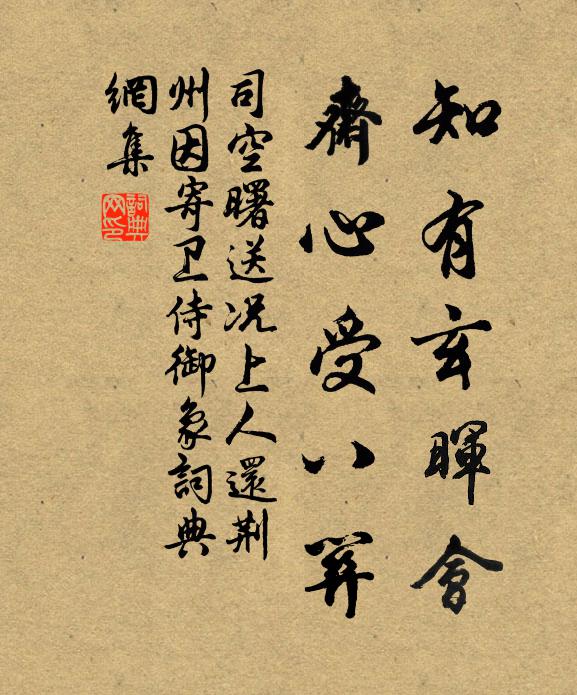 知有玄暉會
齋心受八關
司空曙送况上人還荆
州因寄卫侍御象詞典
網集
詞典網印